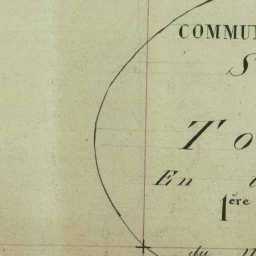 COMMU
S
To
En
1ère
du